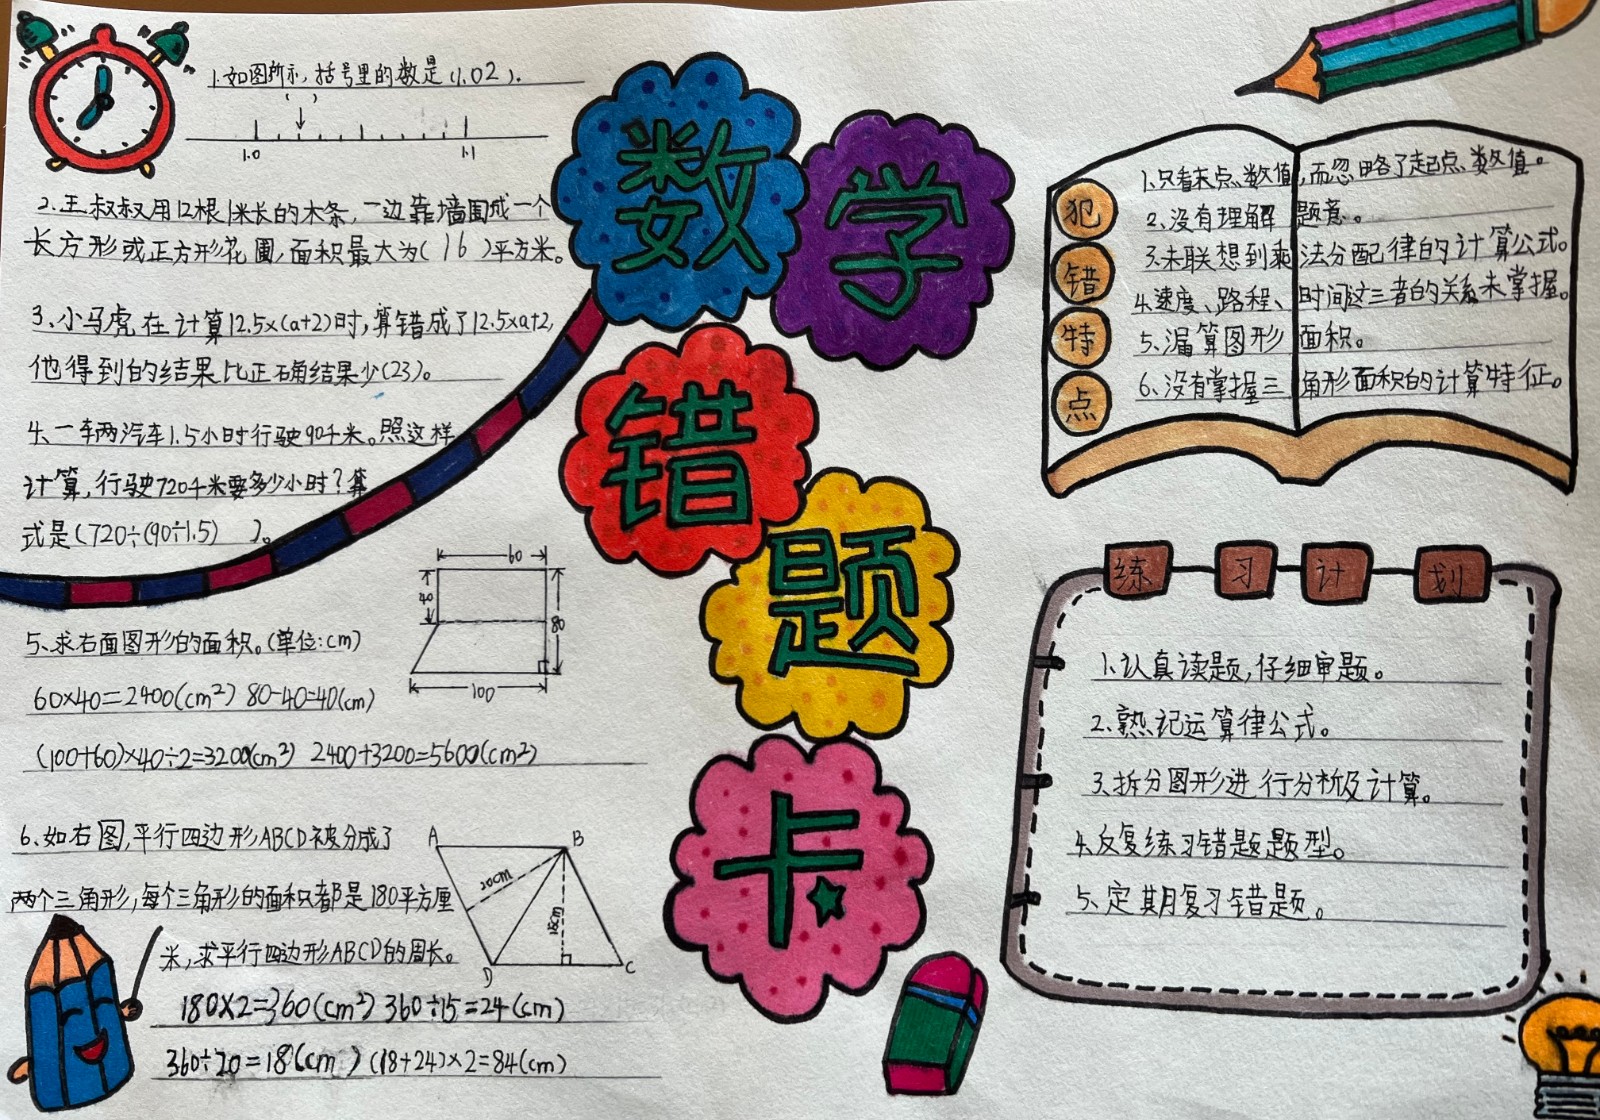 1.如图所示,括号里的数是(1.02).
( )
1.0 1.1
2.王叔叔用12根1米长的木条,一边靠墙围成一个
长方形或正方形花圃,面积最大为(16)平方米。
3、小马虎在计算12.5×(a+2)时,算错成了12.5×a+2,
他得到的结果比正确结果少(23)。
4、一车两汽车1.5小时行驶90千米。照这样
计算,行驶720千米要多少小时?算
式是(720÷(90÷1.5) )。
60
40
80
100
5、求右面图形的面积。(单位:cm)
60×40=2400(cm²) 80-40=40(cm)
(100+60)×40÷2=3200(cm²) 2400+3200=5600(cm²)
6、如右图,平行四边形ABCD被分成了
两个三角形,每个三角形的面积都是180平方厘
米,求平行四边形ABCD的周长。
A B
20cm
15cm
D C
180×2=360(cm²) 360÷15=24(cm)
360÷20=18(cm) (18+24)×2=84(cm)
数学
错
题
卡
犯错特点
1、只看末点数值,而忽略了起点数值。
2、没有理解题意。
3、未联想到乘法分配律的计算公式。
4、速度、路程、时间这三者的关系未掌握。
5、漏算图形面积。
6、没有掌握三角形面积的计算特征。
练习计划
1、认真读题,仔细审题。
2、熟记运算律公式。
3、拆分图形进行分析及计算。
4、反复练习错题题型。
5、定期复习错题。